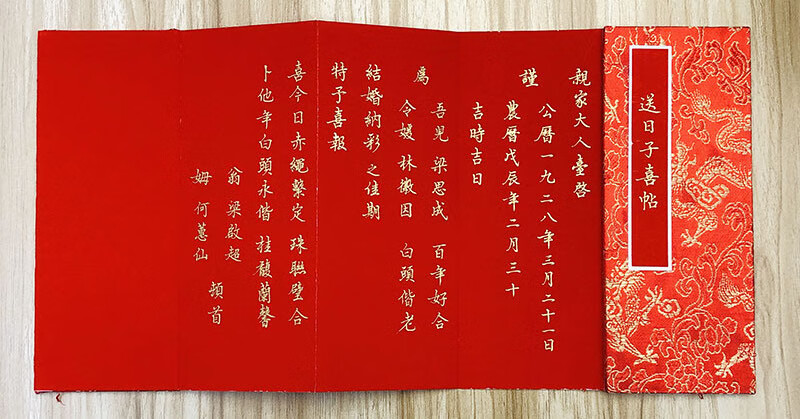 送日子喜帖
親家大人臺啓
謹
公曆一九二八年三月二十一日
農曆戊辰年二月三十
吉時吉日
為
吾兒 梁思成 百年好合
令嬡 林徽因 白頭偕老
結婚納彩之佳期
特予喜報
喜今日赤繩繫定 珠聯璧合
卜他年白頭永偕 桂馥蘭馨
翁 梁啟超
姆 何蕙仙
頓首